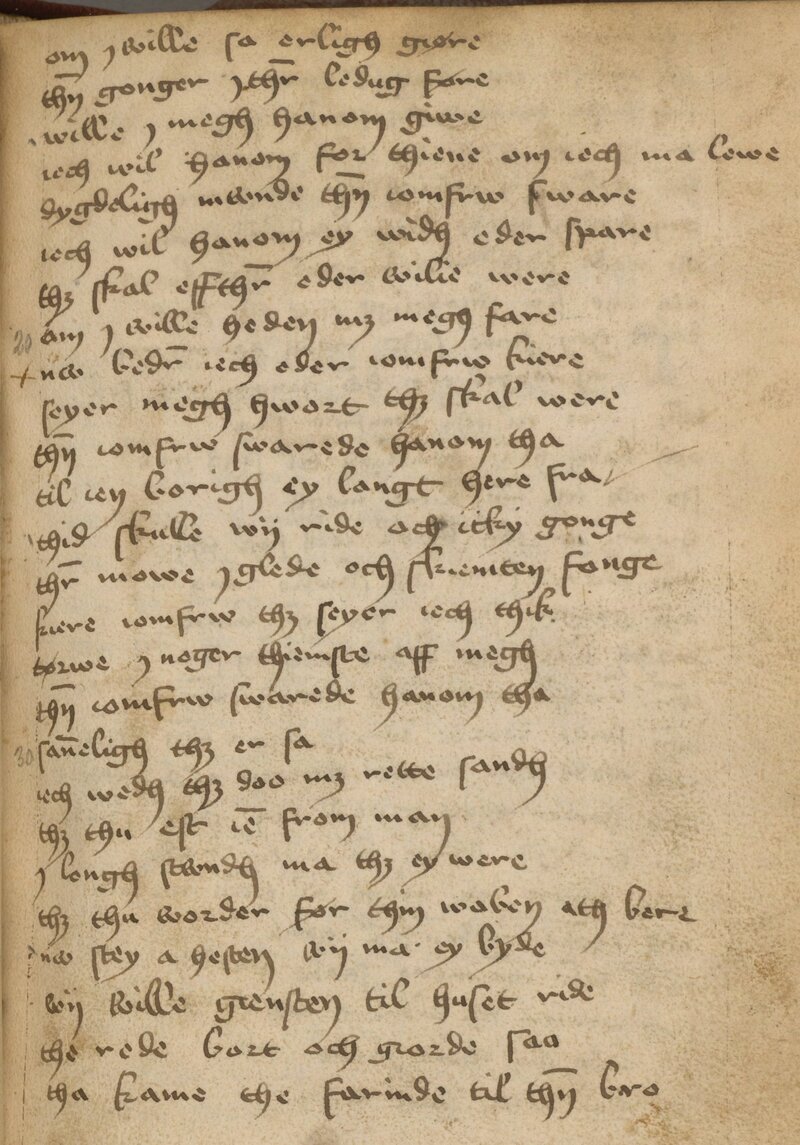 om j wille sa erligh giøre
thn̄ gonger j thr̄ ledug føre
wille j megh hanom giwe
iech wil hanom for thiene om iech ma lewe
dygdeligh mwnde thn̄ iomfrw sware
iech wil hanom ey widh eder spare
thz skal effthr̄ eder wilie were
om j wille heden mz megh fare
20
nw bedr̄ iech eder iomfrw kiere
seyer megh hwort thz skal were
thn̄ iomfrw swarede hanom tha
til ien borigh ey langt here fra
thid skulle wij ride och icky gonge
thr̄ mowe j glede och skiemten fonge
kiere iomfrw thz seyer iech thik
tørwe j noger thieniste aff megh
thn̄ iomfrw swarede hanom tha
30 san̄eligh thz er sa
iech wedh thz doo mz rette sandh
thz thu est iē from man
j longh stwndh ma thz ey were
thz thu worder før thin woben ath bere
nw stey a hesten wij ma ey byde
wij wille giensten til huset ride
the rede bort och giorde saa
tha kame the farinde til thn̄ bro